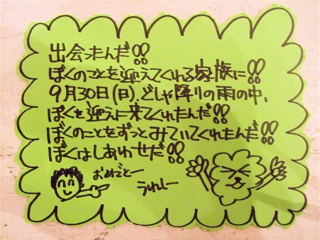 出会ったんだ!!
ぼくのことを迎えてくれる家族に!!
9月30日(日)、どしゃ降りの雨の中、
ぼくを迎えに来てくれたんだ!!
ぼくのことをずっとみていてくれたんだ!!
ぼくはしあわせだ!!
おめでとー
うれしー